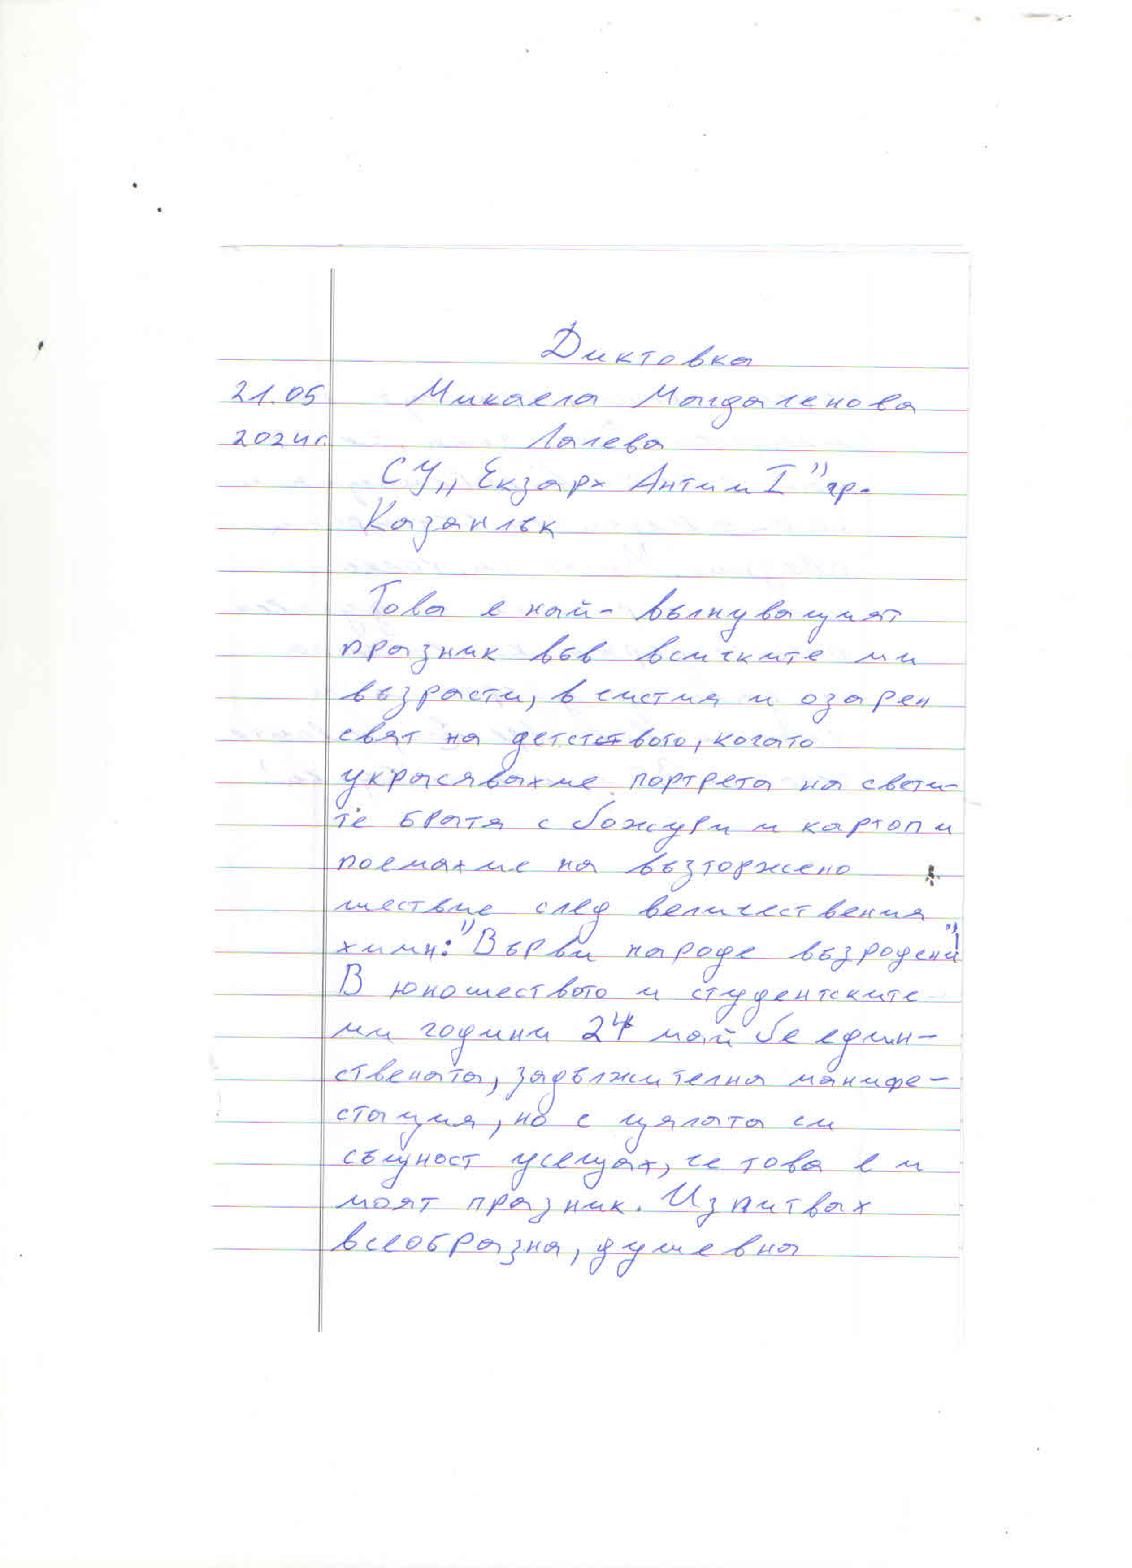 Диктовка
21.05 Микаела Магдаленова
2024г. Лалева
СУ „Екзарх Антим I" гр.
Казанлък
Това е най-вълнуващият
празник във всичките ми
възрасти, в чистия и озарен
свят на детството, когато
украсявахме портрета на свети-
те братя с божури и картопи
поемахме на възторжено
шествие след величествения
химн: "Върви народе възродени"!
В юношеството и студентските
ми години 24 май бе един-
ствената, задължителна манифе-
стация, но с цялата си
същност усещах, че това е и
моят празник. Изпитвах
всеобразна, душевна